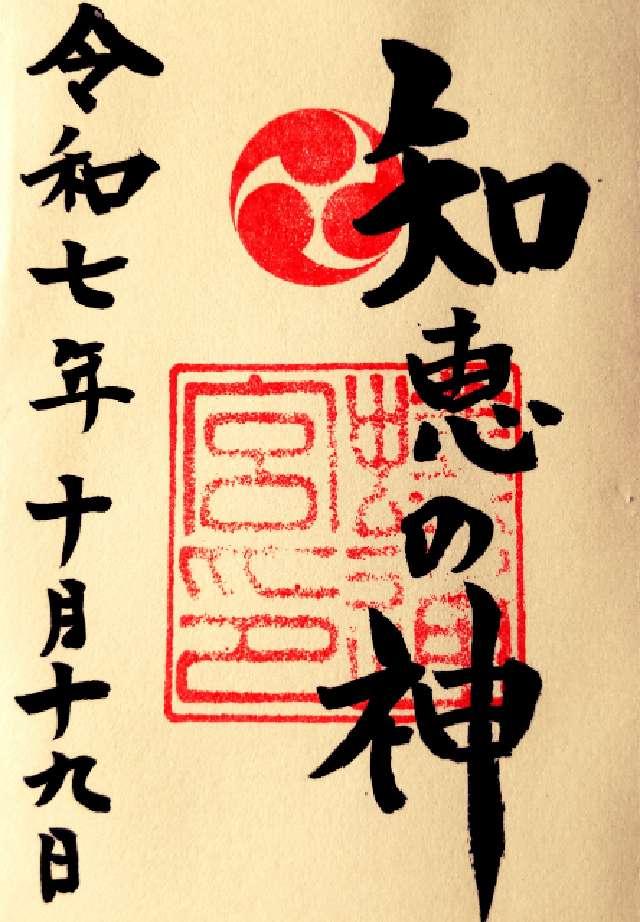 知恵の神
令和七年十月十九日